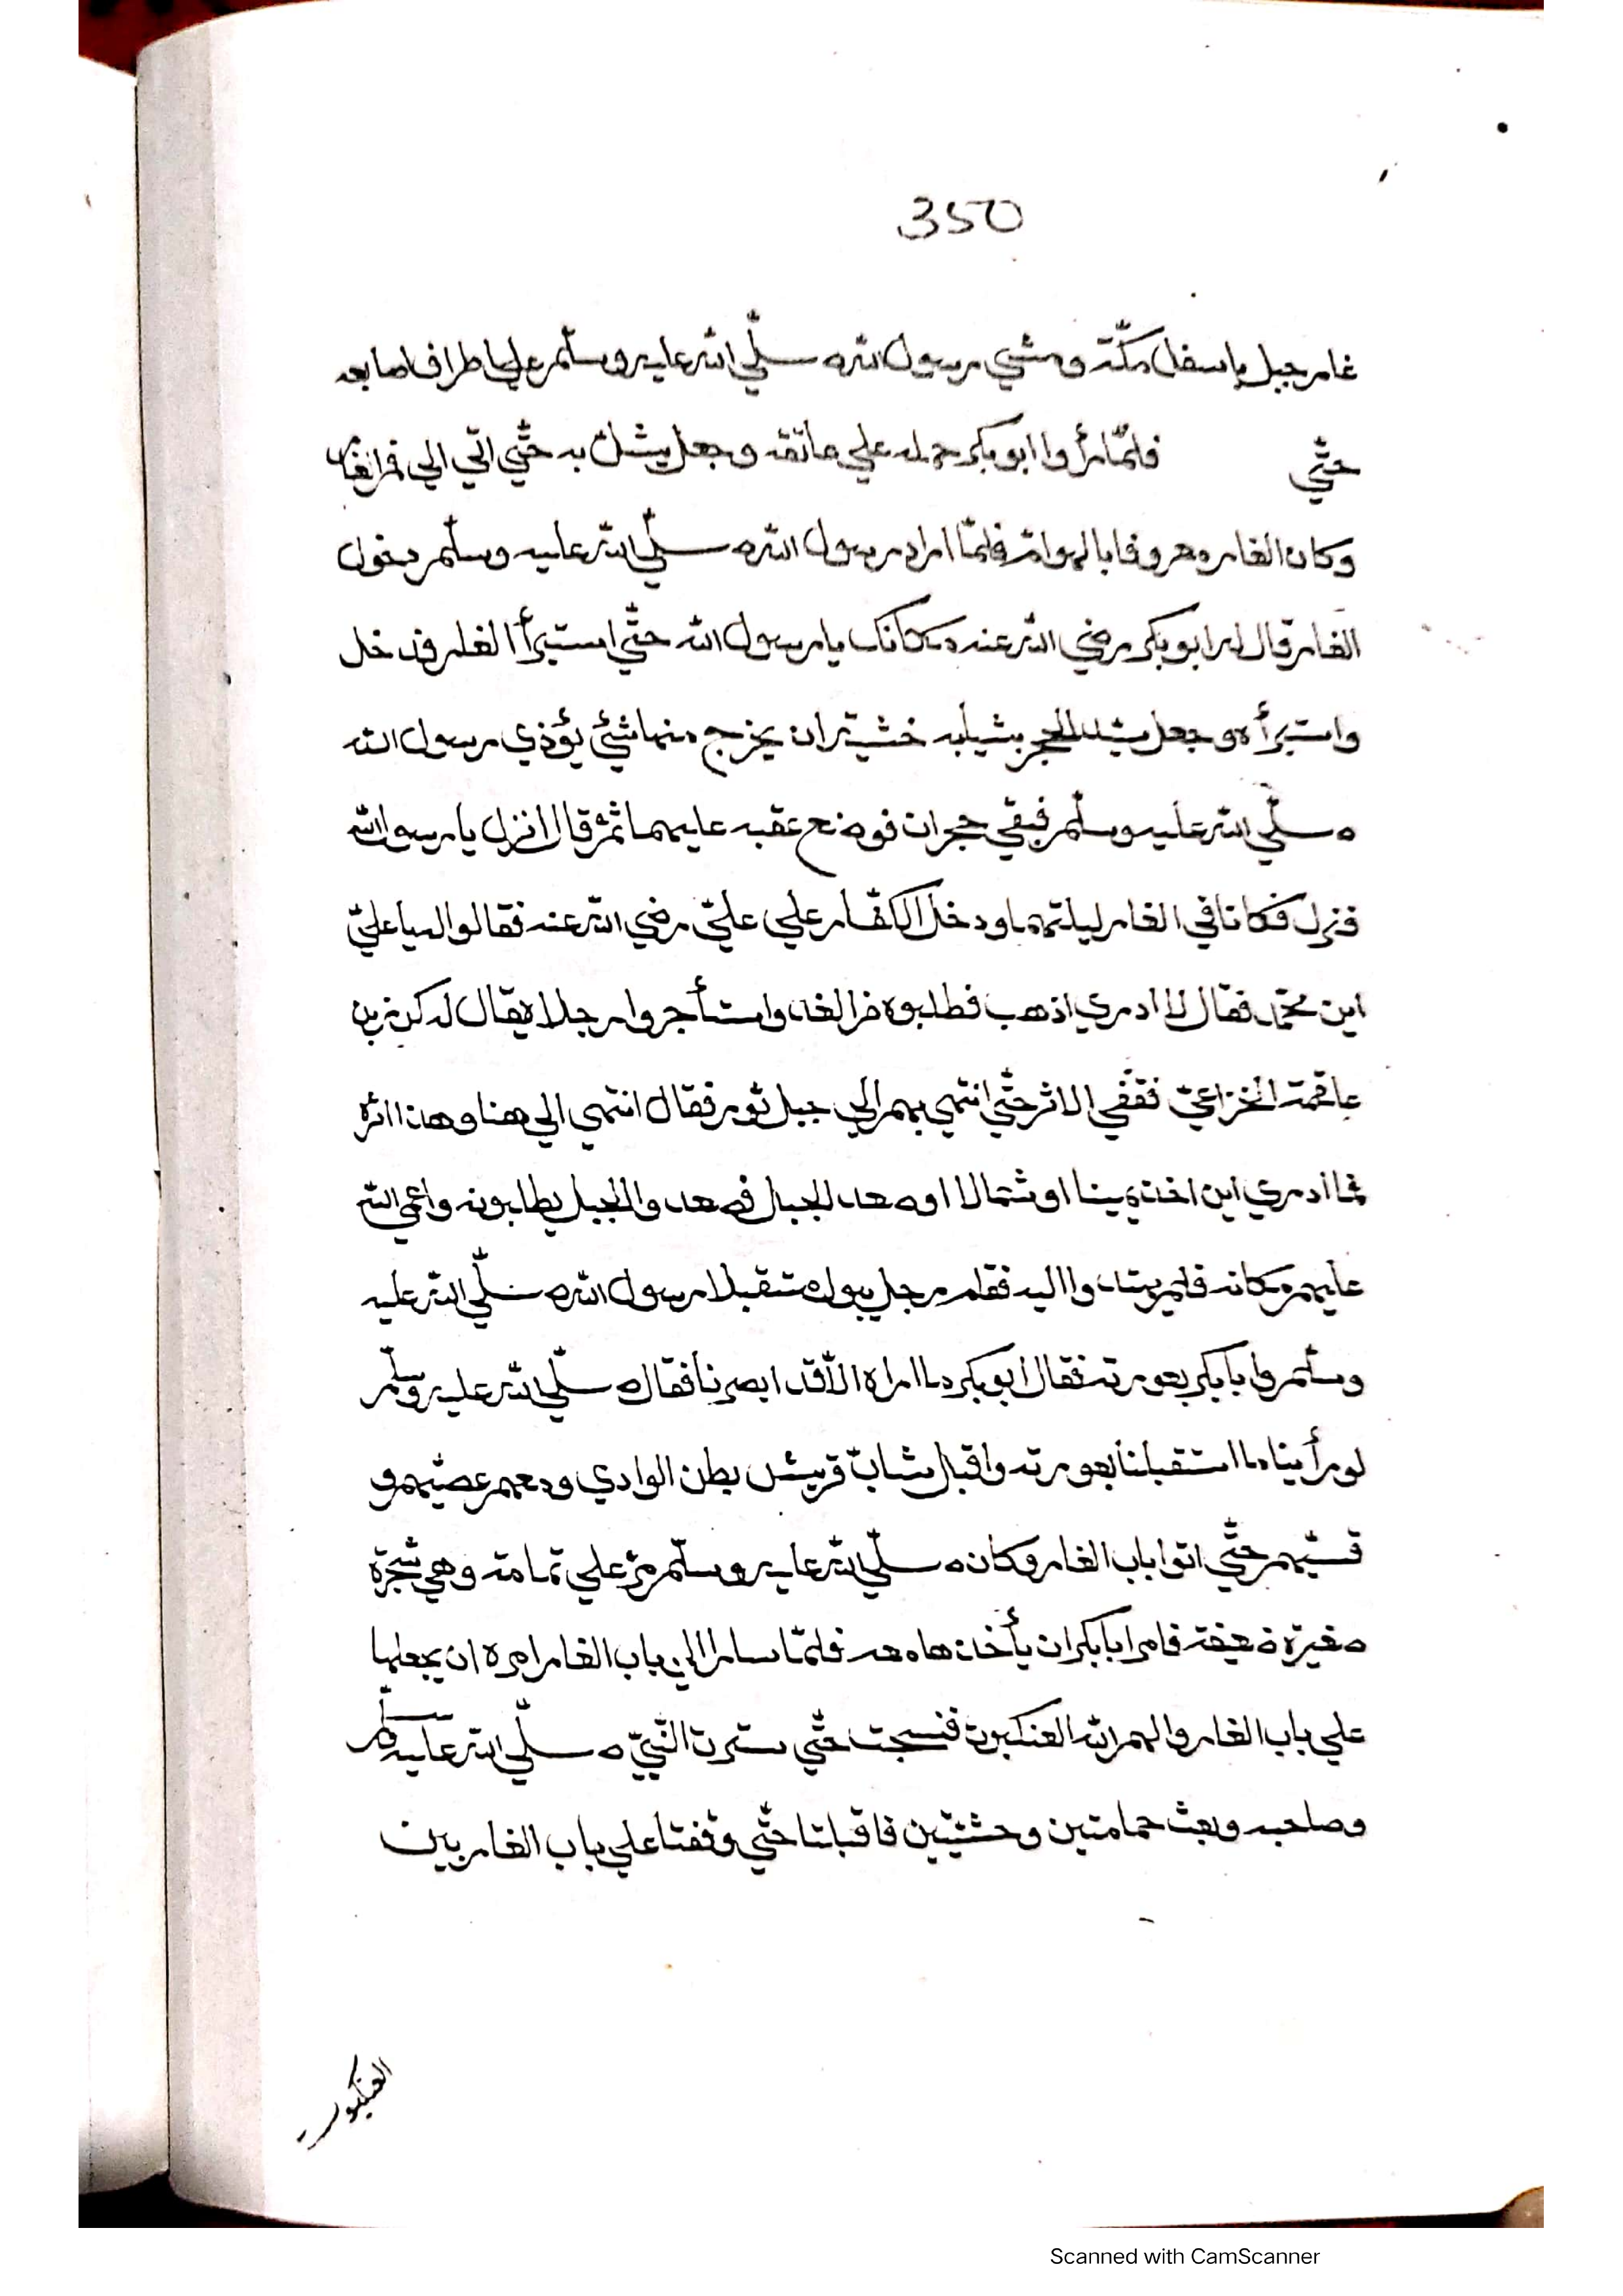 350
غار جبل باسفل مكّة ومشي رسول الله صلّي الله عليه وسلّم علي اطراف اصابعه
حتّي فلمّا رأوا ابو بكر حمله علي عاتقه وجعل يشدّ به حتّي اتي الي فم الغار
وكان الغار معروفا بالهوامّ فلمّا اراد رسول الله صلّي الله عليه وسلّم دخول
الغار قال له ابو بكر رضي الله عنه مكانك يا رسول الله حتّي استبرأ الغار فدخل
واستبرأه وجعل يشد الحجر بثيابه خشية ان يخرج منها شئ يؤذي رسول الله
صلّي الله عليه وسلّم فبقي حجران فوضع عقبه عليهما ثمّ قال انزل يا رسول الله
فنزل فكانا في الغار ليلتهما ودخل الكفّار علي عليّ رضي الله عنه فقالوا له يا عليّ
اين محمّد فقال لا ادري اذهب فطلبوه فرا لغد واستأجروا رجلا يقال له كرز بن
علقمة الخزاعيّ فقفّي الاثر حتّي انتهي بهم الي جبل ثور فقال انتهي الي هنا وهذا اثره
فما ادري اين اخذ يمينا او شمالا او صعد الجبال فصعدوا الجبل يطلبونه واعمي الله
عليهم مكانه فلم يهتدوا اليه فقام رجل يبول مستقبلا رسول الله صلّي الله عليه
وسلّم وابا بكر بعورته فقال ابو بكر ما اراه الاّ قد ابصرنا فقال صلّي الله عليه وسلّم
لو رأينا ما استقبلنا بعورته واقبل شابّ قريش بطن الوادي ومعهم عصيّهم و
قسيّهم حتّي اتوا باب الغار وكان صلّي الله عليه وسلّم مرّ علي ثمامة وهي شجرة
صغيرة ضعيفة فامر ابا بكر ان يأخذها معه فلمّا سارا الي باب الغار امره ان يجعلها
علي باب الغار والهم الله العنكبوت فنسجت حتّي سترت النّبيّ صلّي الله عليه وسلّم
وصاحبه وبعث حمامتين وحشيّتين فاقبلتا حتّي وقفتا علي باب الغار بين
العنكبوت
Scanned with CamScanner